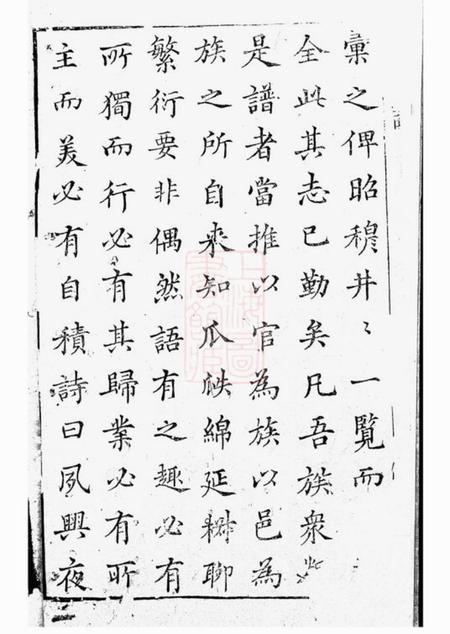 彙之俾昭穆井〻一覽而
全此其志已勤矣凡吾族衆此
是譜者當推以官為族以邑為
族之所自来知瓜瓞綿延椒聊
繁衍要非偶然語有之趣必有
所獨而行必有其歸業必有所
主而美必有自積詩曰夙興夜
上海圖書館